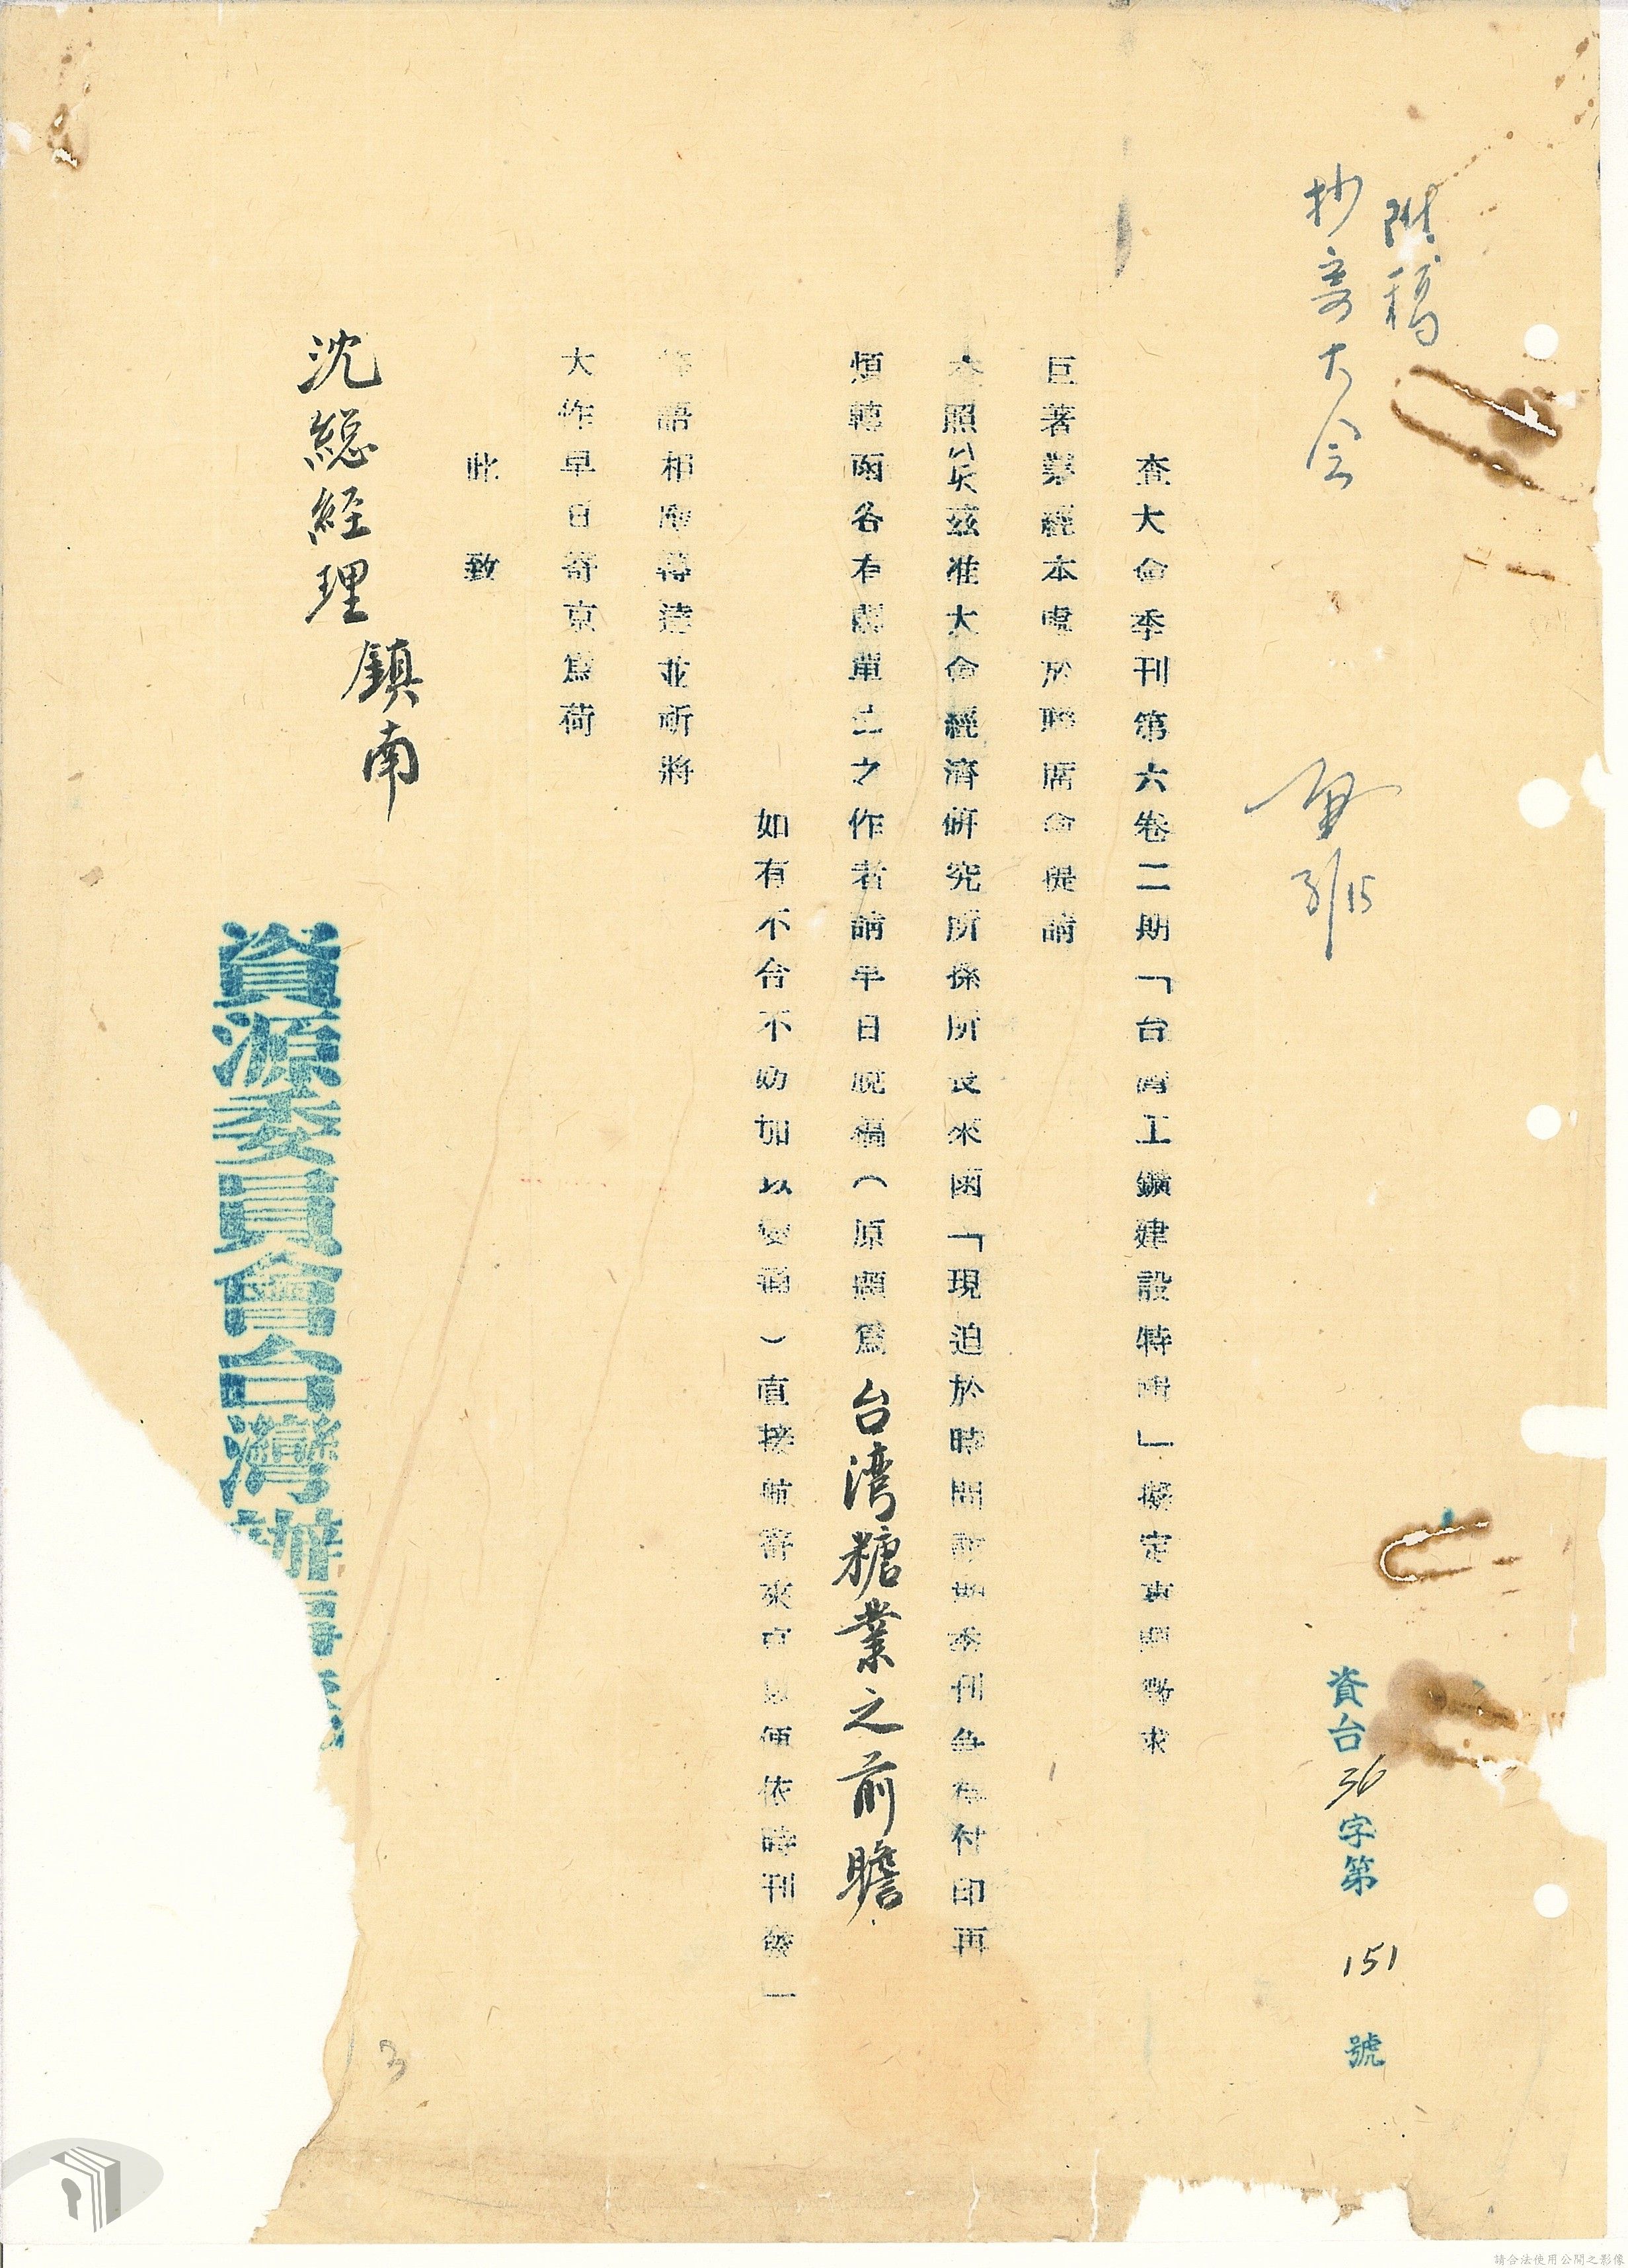 資台36字第151號
附稿
抄寄大会
3/15
查大會季刊第六卷二期「台灣工鑛建設特輯」擬定專題徵求
巨著業經本處於聯席會提請
查照公決茲准大會經濟研究所孫所長來函「現迫於時間該期季刊急須付印再
煩轉函各有關單位之作者請早日脫稿(原題為台湾糖業之前瞻
如有不合不妨加以變通)直接航寄來京以便依時刊發」
等語相應轉達並祈將
大作早日寄京為荷
此致
沈総経理鎮南
資源委員會台灣辦事處
3
請合法使用公開之影像